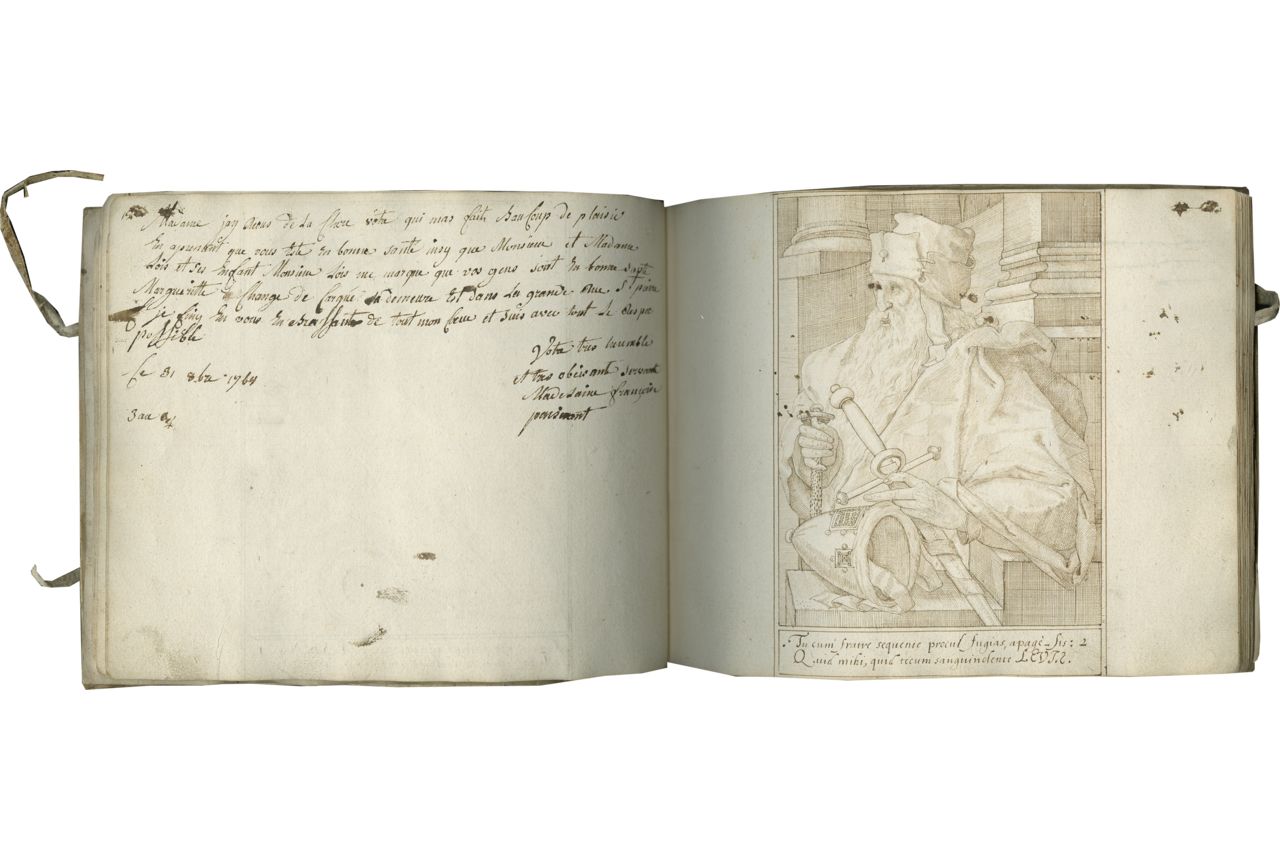 Madame jay Reus de La Chere votre qui mas faite Baucoup de plaisir
En aprenant que vous Ette En bonne sante insy que Monsieur et Madame
Lois et ses Enfant Monsieur Lois me marque que vos gens sont En bonne sante
Margueritte Change de Cartié sa demeure Est dans La grande Rue St piere
je finy En vous En Brassante de tout mon Cœur et suis avec tout le Respec
possible
Votre tres heumble
et tres obeisante servante
Madelaine françoise
Le 31 8bre 1764
Tu cum fratre sequente procul fugias, apage-sis: 2
Quid mihi, quid tecum sanguinolente LEVI?.